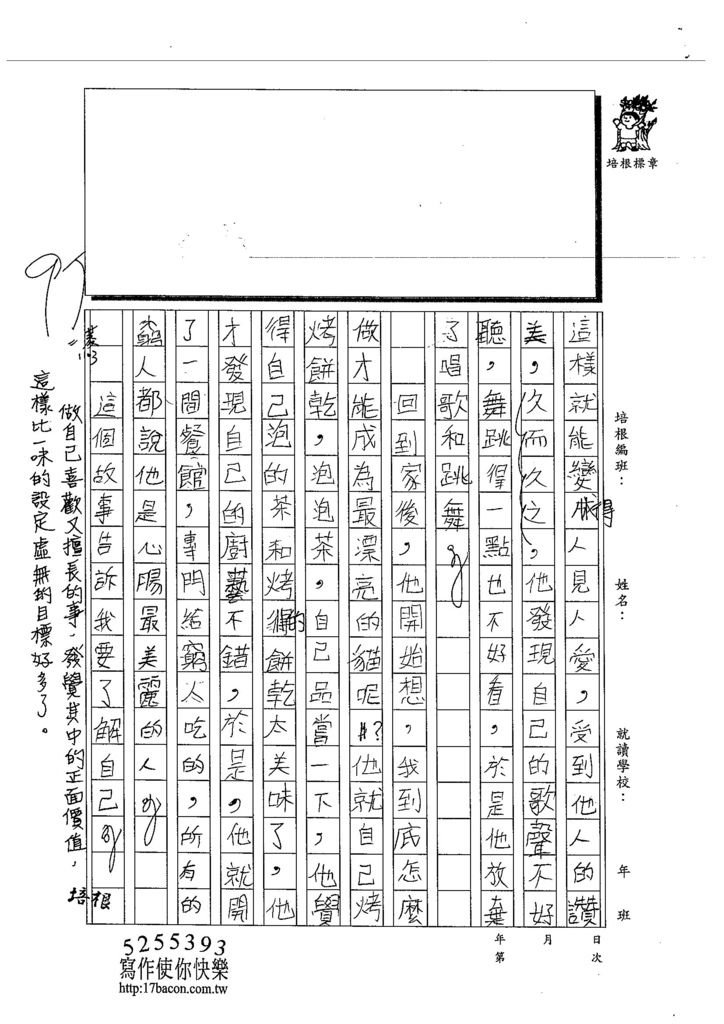 培根標章
培根編班：　姓名：　就讀學校：　年　班
年　月　日
第　次
這樣就能變得人見人愛，受到他人的讚
美，久而久之，他發現自己的歌聲不好
聽，舞跳得一點也不好看，於是他放棄
了唱歌和跳舞。
回到家後，他開始想，我到底怎麼
做才能成為最漂亮的貓呢？他就自己烤
烤餅乾，泡泡茶，自己品嘗一下，他覺
得自己泡的茶和烤的餅乾太美味了，他
才發現自己的廚藝不錯，於是，他就開
了一間餐館，專門給窮人吃的，所有的
窮人都說他是心腸最美麗的人。
這個故事告訴我要了解自己。
97
11/3
做自己喜歡又擅長的事，發覺其中的正面價值，
這樣比一味的設定虛無的目標好多了。
培根
5255393
寫作使你快樂
http:17bacon.com.tw